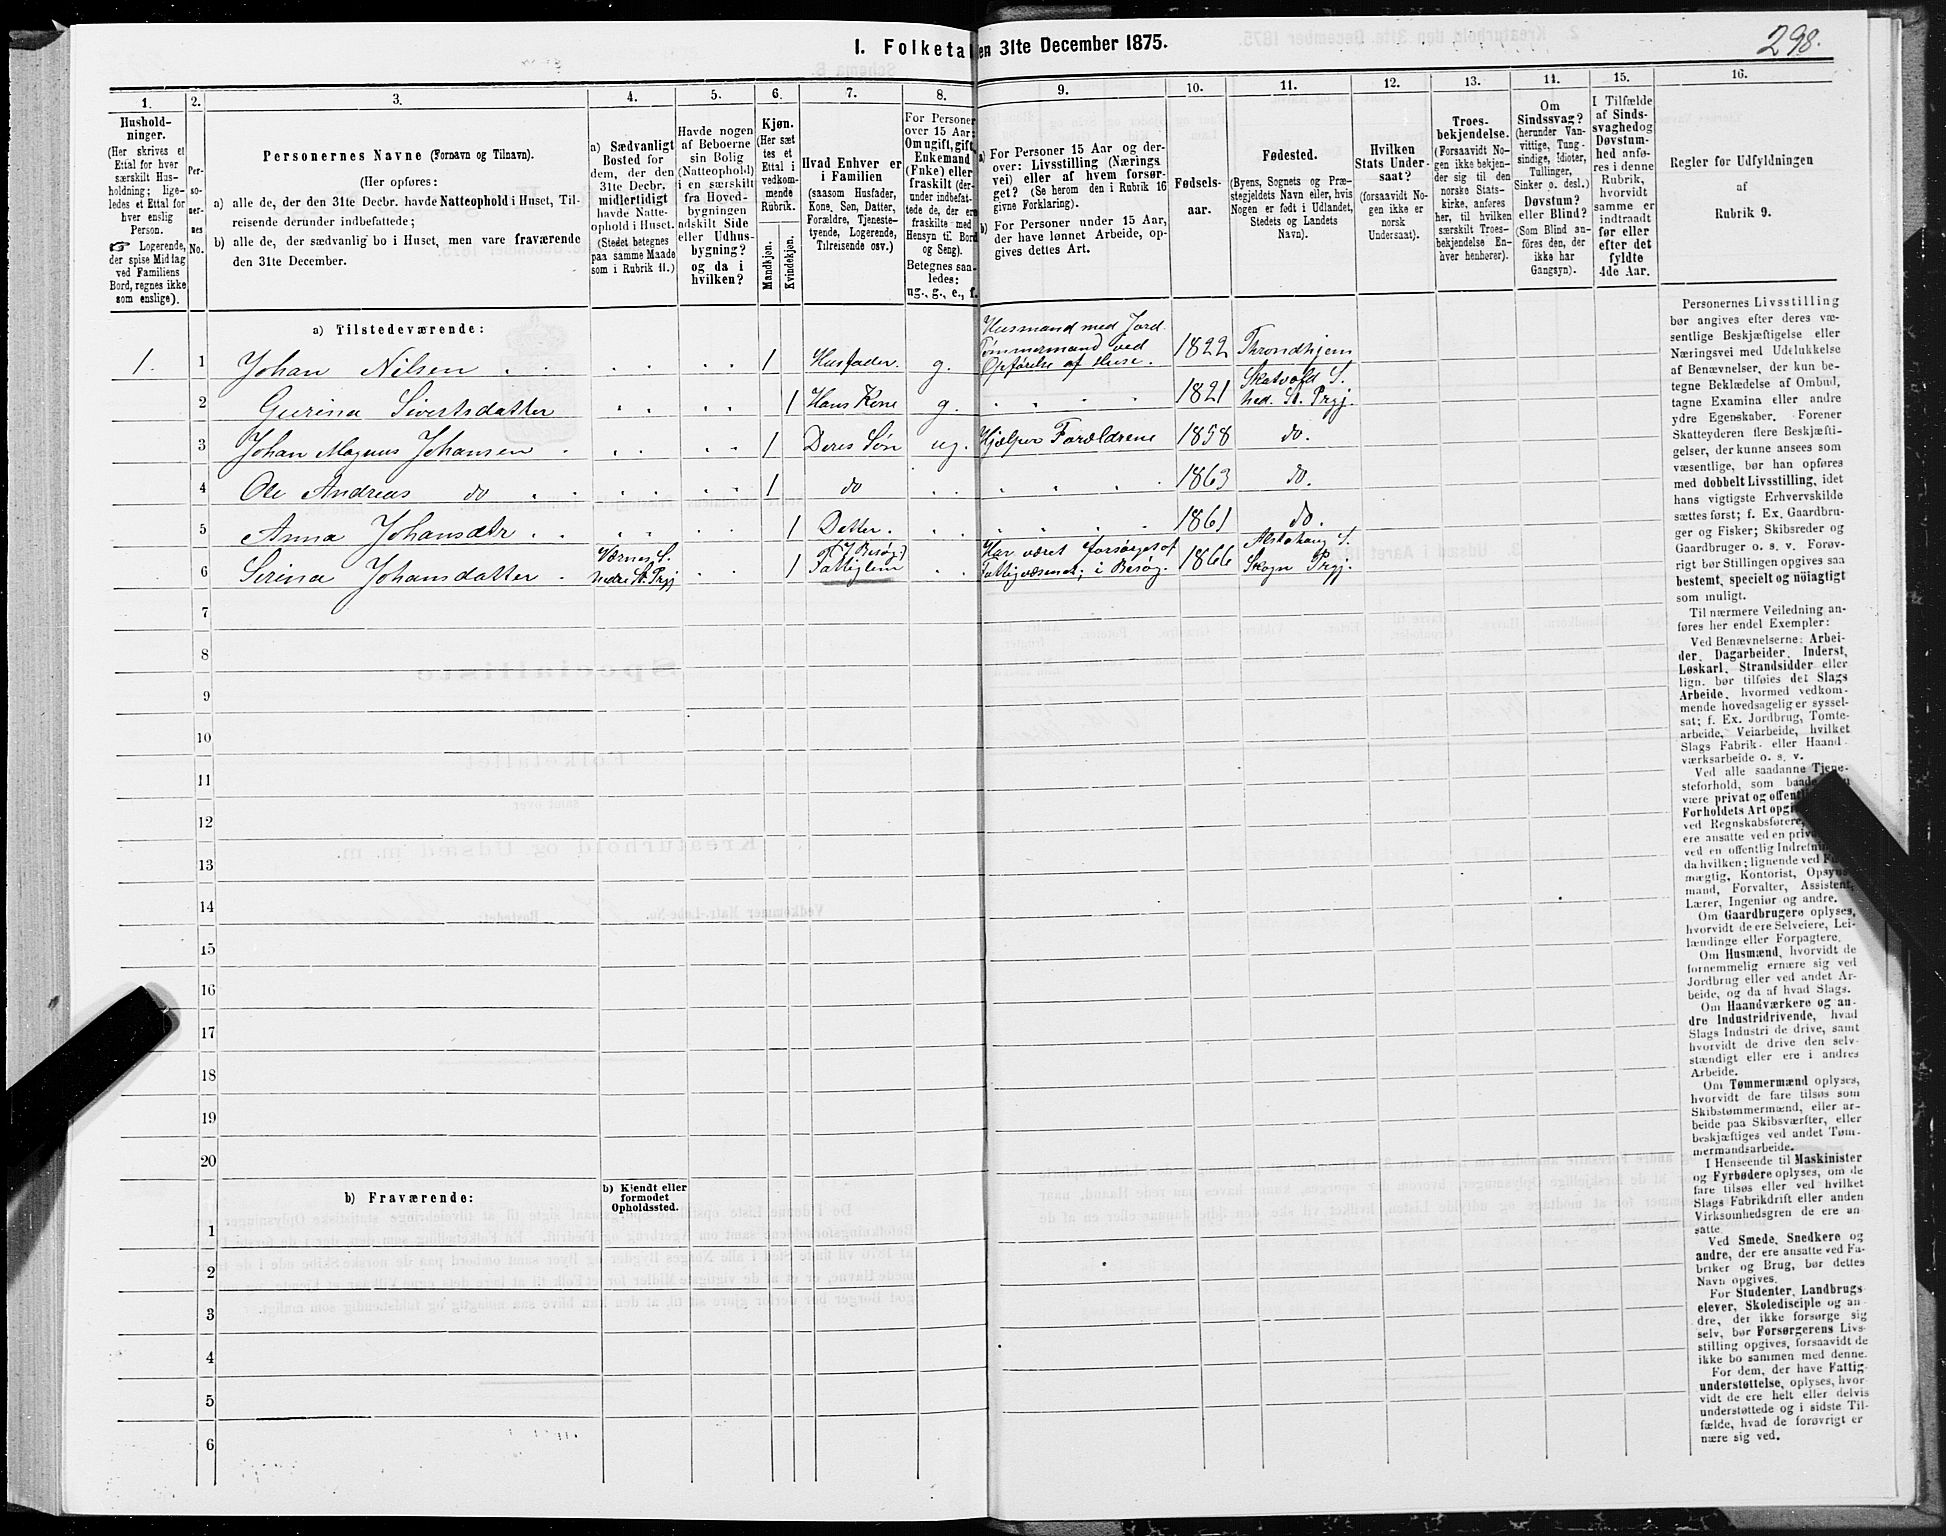 I. Folketal den 31te December 1875.
298.
1.
Hushold-
ninger.
(Her skrives et
Ettal for hver
særskilt Hus-
holdning; lige-
ledes et Ettal for
hver enslig
Person.
☞ Logerende,
der spise Middag
ved Familiens
Bord, regnes ikke
som enslige).
2.
Per-
so-
ner-
nes
No.
3.
Personernes Navne (Fornavn og Tilnavn).
(Her opføres:
a) alle de, der den 31te Decbr. havde Natteophold i Huset, Til-
reisende derunder indbefattede;
b) alle de, der sædvanlig bo i Huset, men vare fraværende
den 31te December.
4.
a) Sædvanligt
Bosted for
dem, der den
31te Decbr.
midlertidigt
havde Natte-
ophold i Huset.
(Stedet betegnes
paa samme Maade
som i Rubrik 11.)
5.
Havde nogen
af Beboerne
sin Bolig
(Natteophold)
i en særskilt
fra Hoved-
bygningen
adskilt Side
eller Udhus-
bygning?
og da i
hvilken?
6.
Kjøn.
(Her sæt
tes et
Ettal i
vedkom-
mende
Rubrik.
Mandkjøn.
Kvindekjøn.
7.
Hvad Enhver er
i Familien
(saasom Husfader,
Kone, Søn, Datter,
Forældre, Tjeneste-
tyende, Logerende,
Tilreisende osv.)
8.
For Personer
over 15 Aar:
Om ugift, gift,
Enkemand
(Enke) eller
fraskilt (der-
under indbefat-
tede de, der ere
fraskilte med
Hensyn til Bord
og Seng).
Betegnes saa-
ledes:
ug., g., e., f.
9.
a) For Personer 15 Aar og der-
over: Livsstilling (Nærings
vei) eller af hvem forsør-
get? (Se herom den i Rubrik 16
givne Forklaring).
b) For Personer under 15 Aar,
der have lønnet Arbeide, op-
gives dettes Art.
10.
Fødsels-
aar.
11.
Fødested.
(Byens, Sognets og Præ-
stegjeldets Navn eller, hvis
Nogen er født i Udlandet,
Stedets og Landets
Navn).
12.
Hvilken
Stats Under-
saat?
(forsaavidt No-
gen ikke er
norsk
Undersaat).
13.
Troes-
bekjendelse.
(Forsaavidt No-
gen ikke bekjen-
der sig til den
norske Stats-
kirke, anføres
her, til hvilken
særskilt Troes-
bekjendelse En-
hver henhører).
14.
Om
Sindssvag?
(herunder Van-
vittige, Tung-
sindige, Idioter,
Tullinger,
Sinker o. desl.)
Døvstum?
eller Blind?
(Som Blind an-
føres den, der
ikke har
Gangsyn).
15.
I Tilfælde
af Sinds-
svaghed og
Døvstum-
hed anfø-
res i denne
Rubrik,
hvorvidt
samme er
indtraadt
før eller
efter det
fyldte
4de Aar.
16.
Regler før Udfyldningen
af
Rubrik 9.
a) Tilstedeværende:
1. 1 Johan Nilsen 1 Husfader. g. Husmand med Jord. Tømmermand ved Opførelse af Huse. 1822 Throndhjem
2 Gurina Sivertsdatter 1 Hans Kone g. 1821 Skatvold S. Ned. St. Prgj.
3 Johan Magnus Johansen 1 Deres Søn ug. Hjælper Forældrene 1858 do.
4 Ole Andreas do 1 do 1863 do.
5 Anna Johansdtr 1 Detter. 1861 do.
6 Serina Johansdatter Værnes S. Nedre St. Prgj 1 (I Besøg) Fattiglem Har været forsørget af Fattigvæsenet; i Besøg. 1866 Alstahaug S. Skogn Prgj.
7
8
9
10
11
12
13
14
15
16
17
18
19
20
b) Fraværende:
b) Kjendt eller
formodet
Opholdssted.
1
2
3
4
5
6
Personernes Livsstilling
bør angives efter deres væ-
sentlige Beskjæftigelse eller
Næringsvei med Udelukkelse
af Benævnelser, der kun be-
tegne Beklædelse af Ombud,
tagne Examina eller andre
ydre Egenskaber. Forener
Skatteyderen flere Beskjæfti-
gelser, der kunne ansees som
væsentlige, bør han opføres
med dobbelt Livsstilling, idet
hans vigtigste Erhvervskilde
sættes først; f. Ex. Gaardbru-
ger og Fisker; Skibsreder og
Gaardbruger o. s. v. Forøv-
rigt bør Stillingen opgives saa
bestemt, specielt og nöiagtigt
som muligt.
Til nærmere Veiledning an-
føres her endel Exempler:
Ved Benævnelserne: Arbei-
der, Dagarbeider, Inderst,
Løskarl, Strandsidder eller
lign. bør tilføies det Slags
Arbeide, hvormed vedkom-
mende hovedsagelig er syssel-
sat; f. Ex. Jordbrug, Tomte-
arbeide, Veiarbeide, hvilket
Slags Fabrik- eller Haand-
værksarbeide o. s. v.
Ved alle saadanne Tjene-
steforhold, som baade
være privat og offentl
Forholdets Art opg
ved Regnskabsførere,
ere ansatte ved en priv
ved en offentlig Indretnin
da hvilken; lignende ved F
mægtig, Kontorist, Opsyns
mand, Forvalter, Assistent,
Lærer, Ingeniør og andre.
Om Gaardbrugere oplyses,
hvorvidt de ere Selveiere, Lei-
lændinge eller Forpagtere.
Om Husmænd, hvorvidt de
fornemmelig ernære sig ved
Jordbrug eller ved andet Ar-
beide, og da af hvad Slags.
Om Haandværkere og an-
dre Industridrivende, hvad
Slags Industri de drive, samt
hvorvidt de drive den selv-
stændigt eller ere i andres
Arbeide.
Om Tømmermænd oplyses,
hvorvidt de fare tilsøs som
Skibstømmermænd, eller ar-
beide paa Skibsværfter, eller
beskjæftiges ved andet Tøm-
mermandsarbeide.
I Henseende til Maskinister
og Fyrbødere oplyses, om de
fare tilsøs eller ved hvilket
Slags Fabrikdrift eller anden
Virksomhedsgren de ere an
satte
Ved Smede, Snedkere og
andre, der ere ansatte ved Fa-
briker og Brug, bør dettes
Navn opgives.
For Studenter, Landbrugs
elever, Skoledisciple og an-
dre, der ikke forsørge sig
selv, bør Forsørgerens Livs-
stilling opgives, forsaavidt de
ikke bo sammen med denne.
For dem, der have Fattig-
understøttelse, oplyses, hvor-
vidt de ere helt eller delvis
understøttede og i sidste Til-
fælde, hvad de forøvrigt er
nære sig ved.